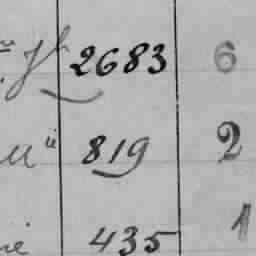 2683 6
819 2
435 1